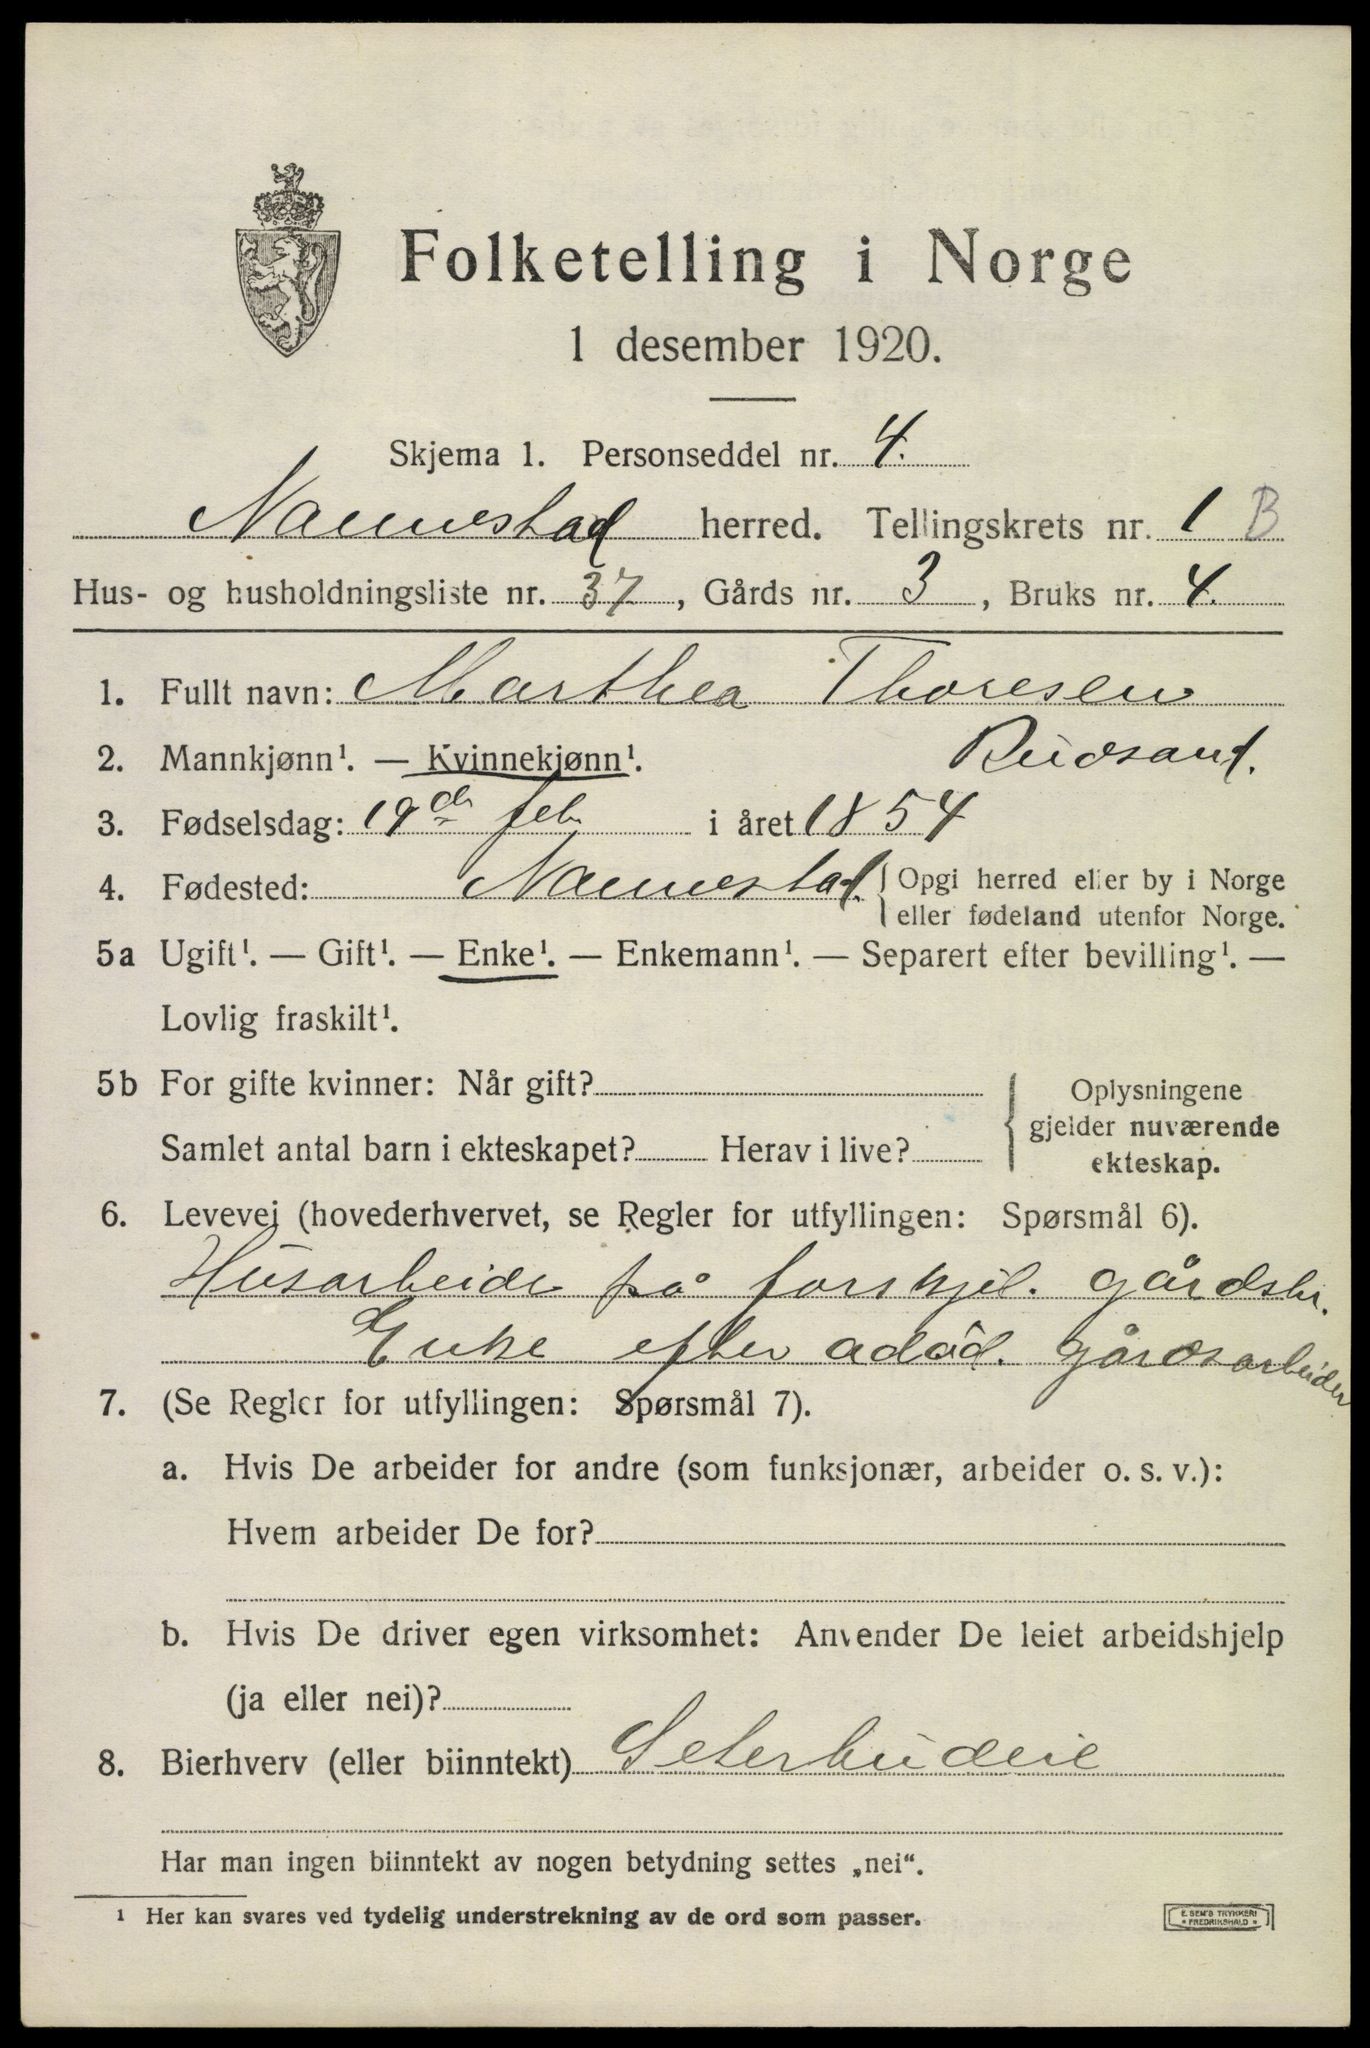 Folketelling i Norge
1 desember 1920.
Skjema 1. Personseddel nr. 4.
Nannestad herred. Tellingskrets nr. 1 B
Hus- og husholdningsliste nr. 37, Gårds nr. 3, Bruks nr. 4.
1. Fullt navn: Marthea Thoresen
Rudsand.
2. Mannkjønn¹. — Kvinnekjønn¹.
3. Fødselsdag: 19de feb. i året 1854
4. Fødested: Nannestad. Opgi herred eller by i Norge
eller fødeland utenfor Norge.
5a Ugift¹. — Gift¹. — Enke¹. — Enkemann¹. — Separert efter bevilling¹. —
Lovlig fraskilt¹.
5b For gifte kvinner: Når gift?
Samlet antal barn i ekteskapet? Herav i live?
Oplysningene
gjelder nuværende
ekteskap.
6. Levevei (hovederhvervet, se Regler for utfyllingen: Spørsmål 6).
Husarbeide på forskjel. gårdsbr.
Enke efter adød. gårdsarbeider
7. (Se Regler for utfyllingen: Spørsmål 7).
a. Hvis De arbeider for andre (som funksjonær, arbeider o. s. v.):
Hvem arbeider De for?
b. Hvis De driver egen virksomhet: Anvender De leiet arbeidshjelp
(ja eller nei)?
8. Bierhverv (eller biinntekt) Seterbudeie
Har man ingen biinntekt av nogen betydning settes „nei“.
¹ Her kan svares ved tydelig understrekning av de ord som passer.
E. SEM'S TRYKKERI
* FREDRIKSHALD *